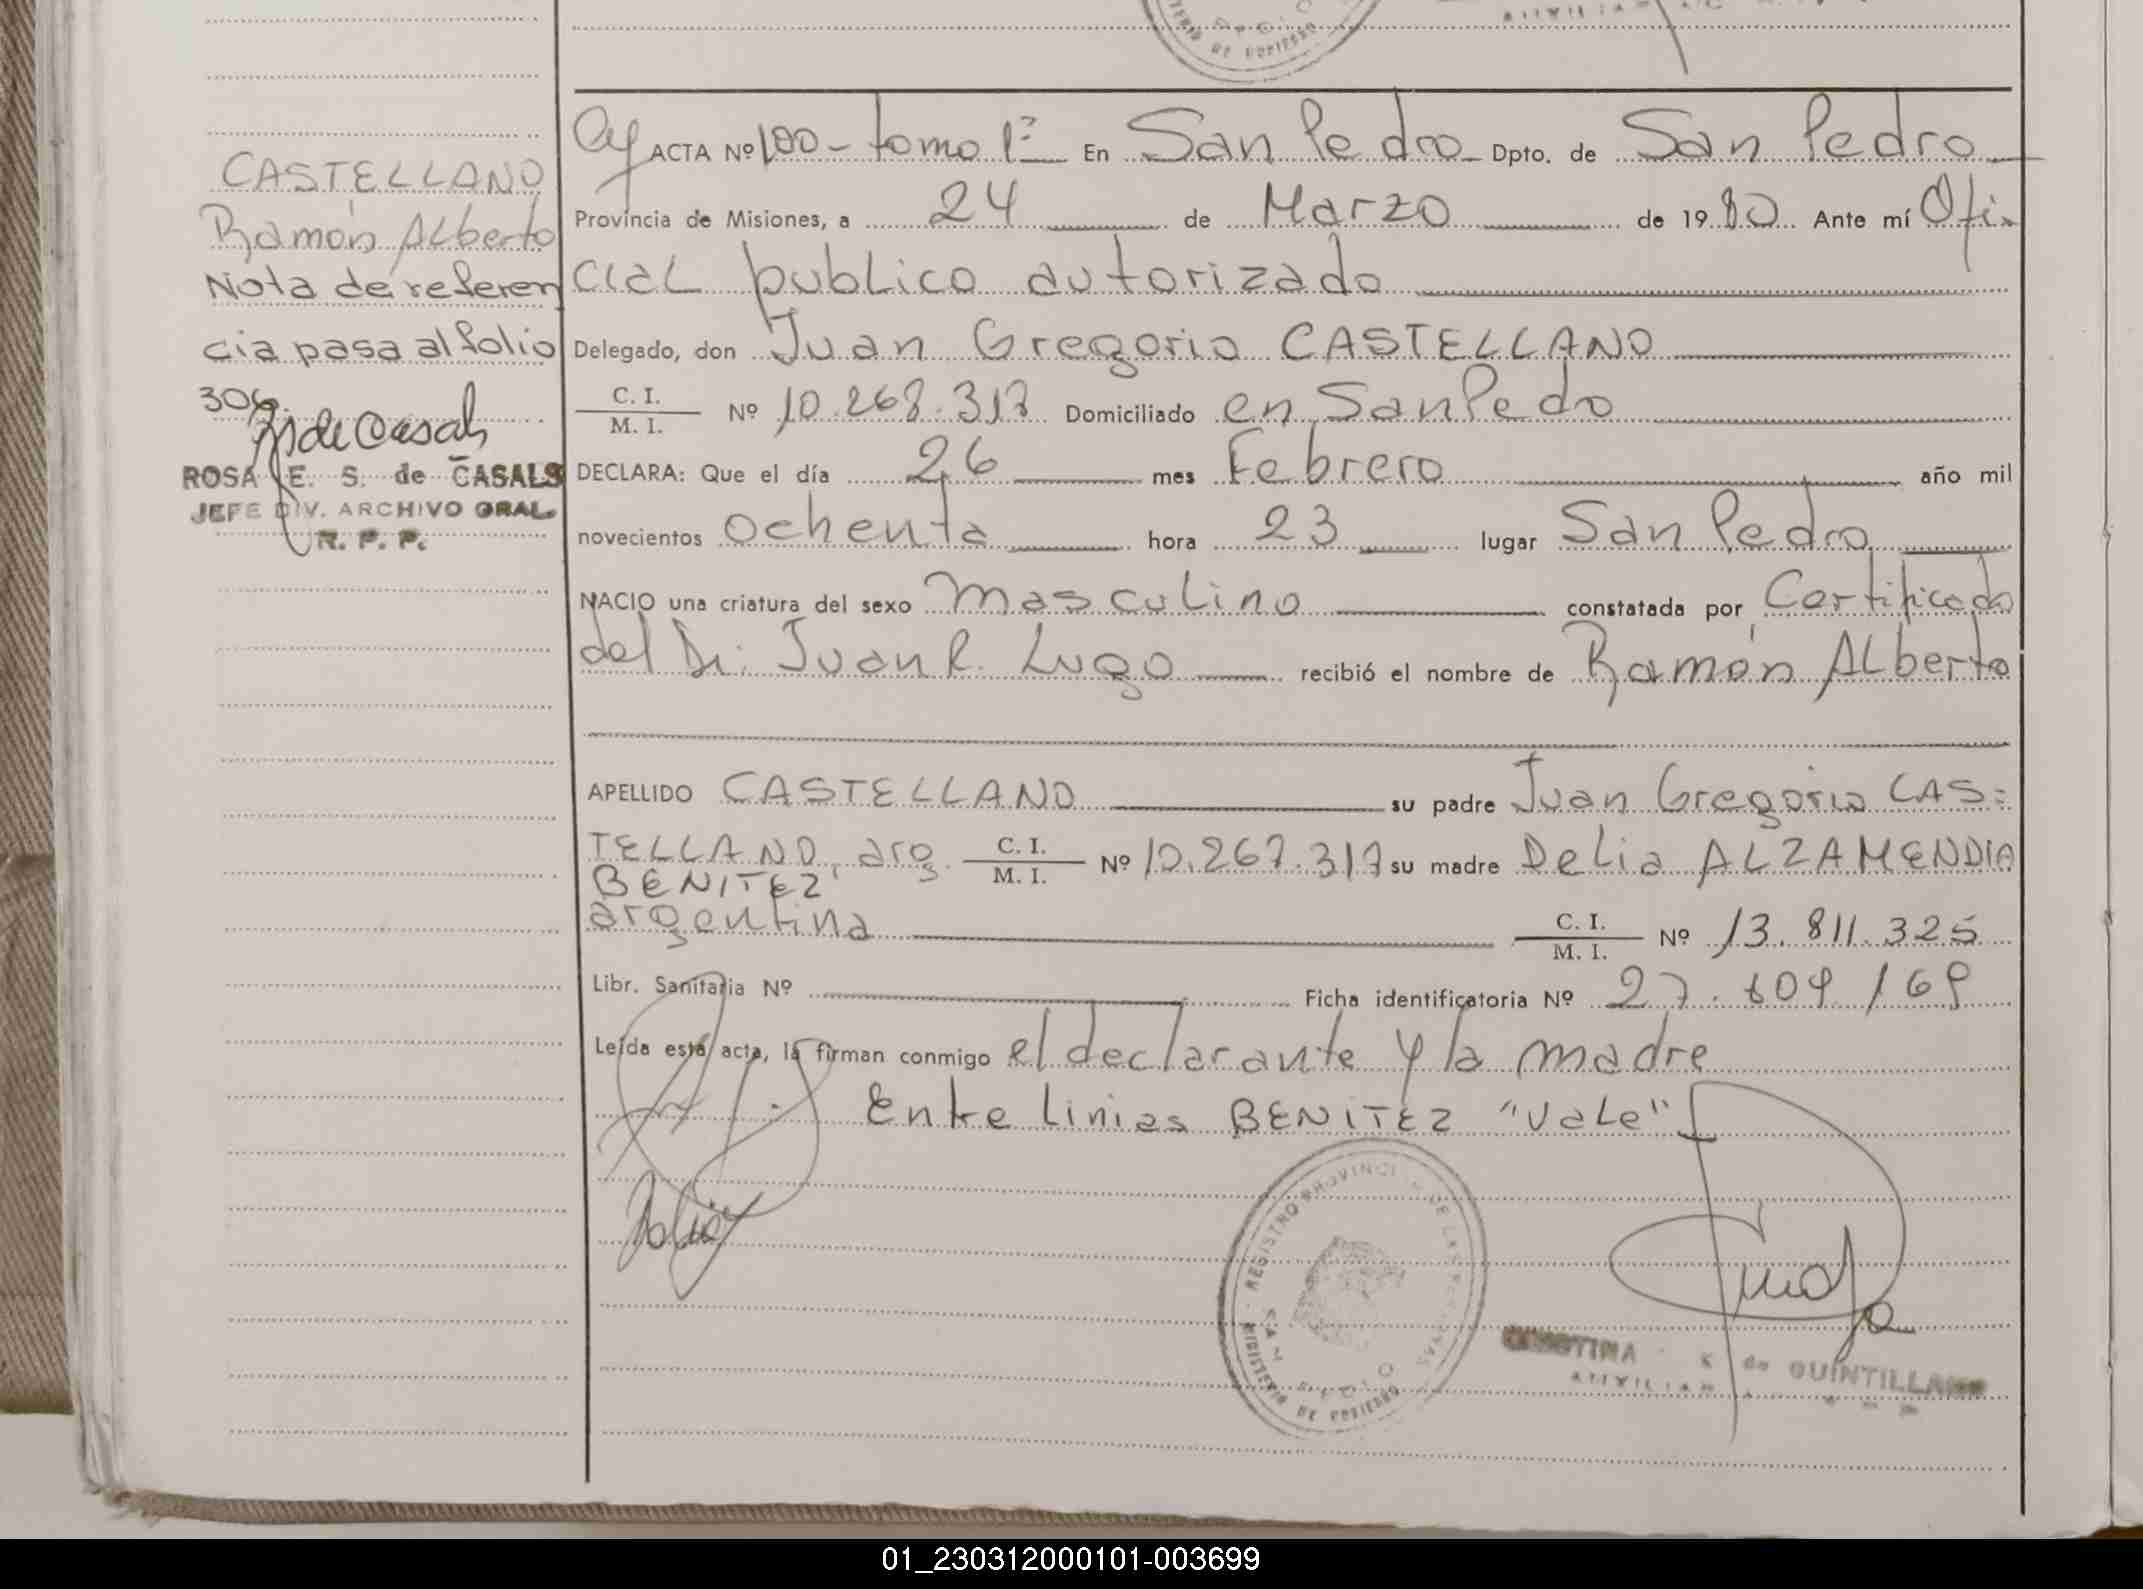 ACTA Nº 100 - tomo 1º En San Pedro Dpto. de San Pedro
Provincia de Misiones, a 24 de Marzo de 19 80 Ante mí Ofi-
cial publico autorizado
Delegado, don Juan Gregorio CASTELLANO
C. I.
M. I.
Nº 10.268.317 Domiciliado en San Pedo
DECLARA: Que el día 26 mes Febrero año mil
novecientos ochenta hora 23 lugar San Pedro
NACIO una criatura del sexo masculino constatada por Certificado
del Dr. Juan R. Lugo recibió el nombre de Ramón Alberto
APELLIDO CASTELLANO su padre Juan Gregorio CAS=
TELLANO, arg. C. I. M. I. Nº 10.267.317 su madre Delia ALZAMENDIA
BENITEZ
argentina C. I. M. I. Nº 13.811.325
Libr. Sanitaria Nº Ficha identificatoria Nº 27.609/69
Leída esta acta, la firman conmigo el declarante y la madre
Entre linias BENITEZ "Vale"
CASTELLANO
Ramón Alberto
Nota de referen
cia pasa al folio
306.
ROSA E. S. de CASALS
JEFE DIV. ARCHIVO GRAL.
R. P. P.
REGISTRO PROVINCIAL DE LAS PERSONAS
SAN PEDRO
MINISTERIO DE GOBIERNO
K de QUINTILLANO
AUXILIAR
01_230312000101-003699